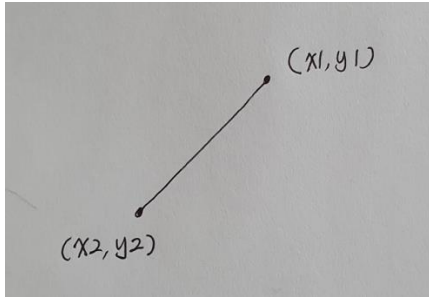 (x1,y1)
(x2,y2)